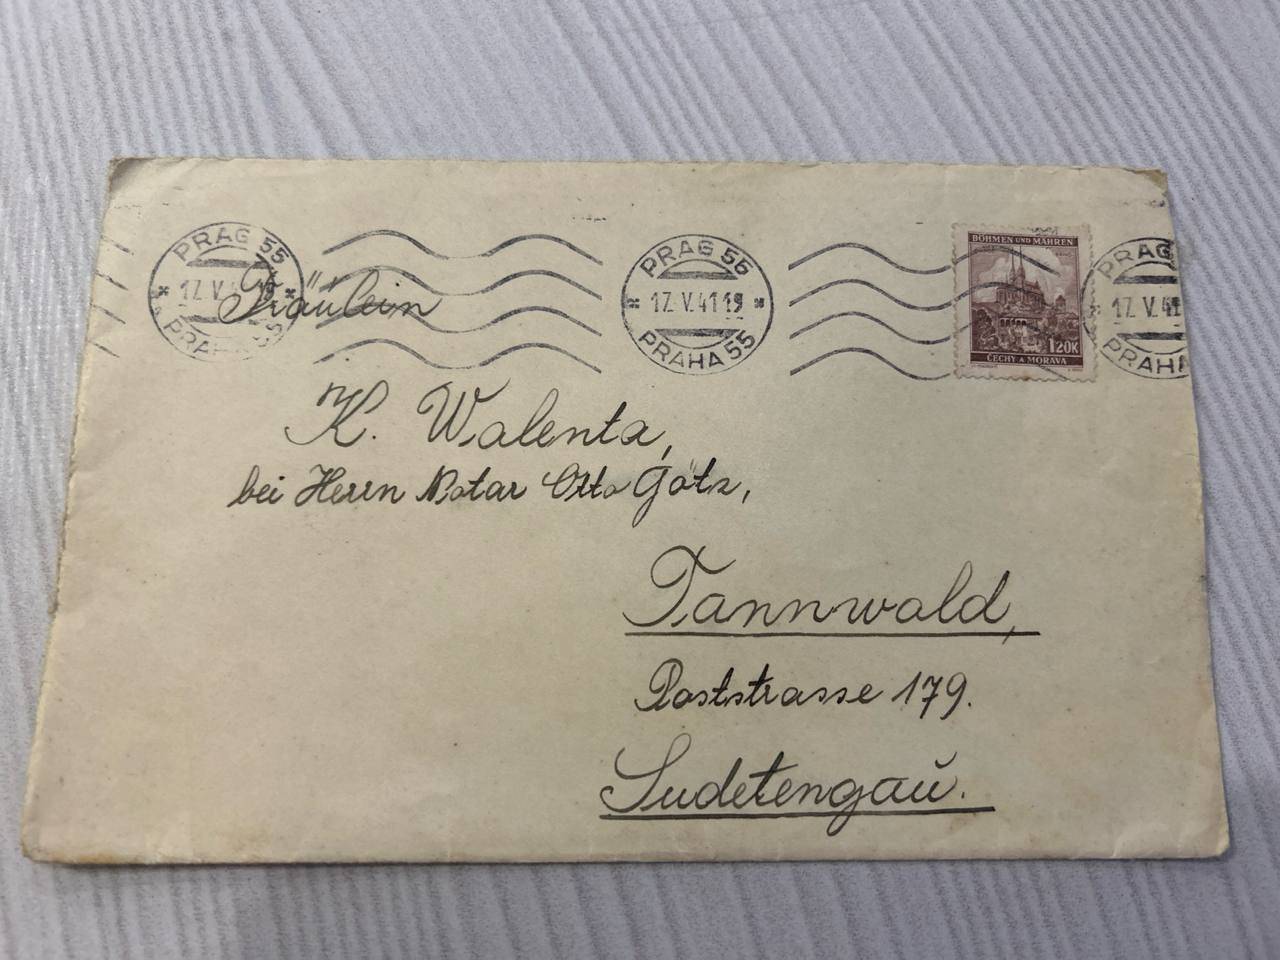 PRAG 55
17. V. 41 19
PRAHA 55
PRAG 55
17. V. 41 19
PRAHA 55
BÖHMEN UND MÄHREN
1.20K
ČECHY A MORAVA
PRAG
17. V. 41
PRAHA
Fräulein
K. Walenta,
bei Herrn Notar Otto Götz,
Tannwald,
Poststrasse 179.
Sudetengaŭ.